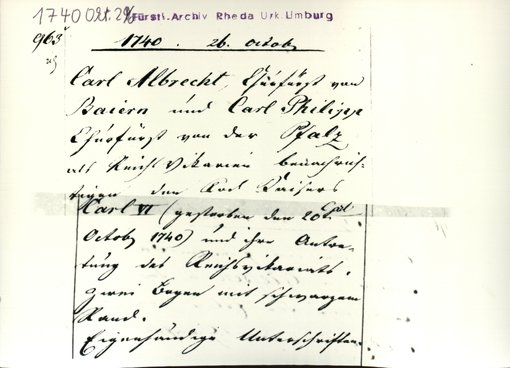 1740 Okt. 26 Fürstl. Archiv Rheda Urk. Limburg
963
1740. 26. Octob
Carl Albrecht, Churfürst von
Baiern und Carl Philipp
Churfürst von der Pfalz
als Reichs Vikarien benachrich-
tigen den Tod Kaisers
Carl VI (gestorben den 20
Octob 1740) und ihre Antre-
tung des Reichsvikariats.
Zwei Bogen mit schwarzem
Rand.
Eigenhändige Unterschriften.